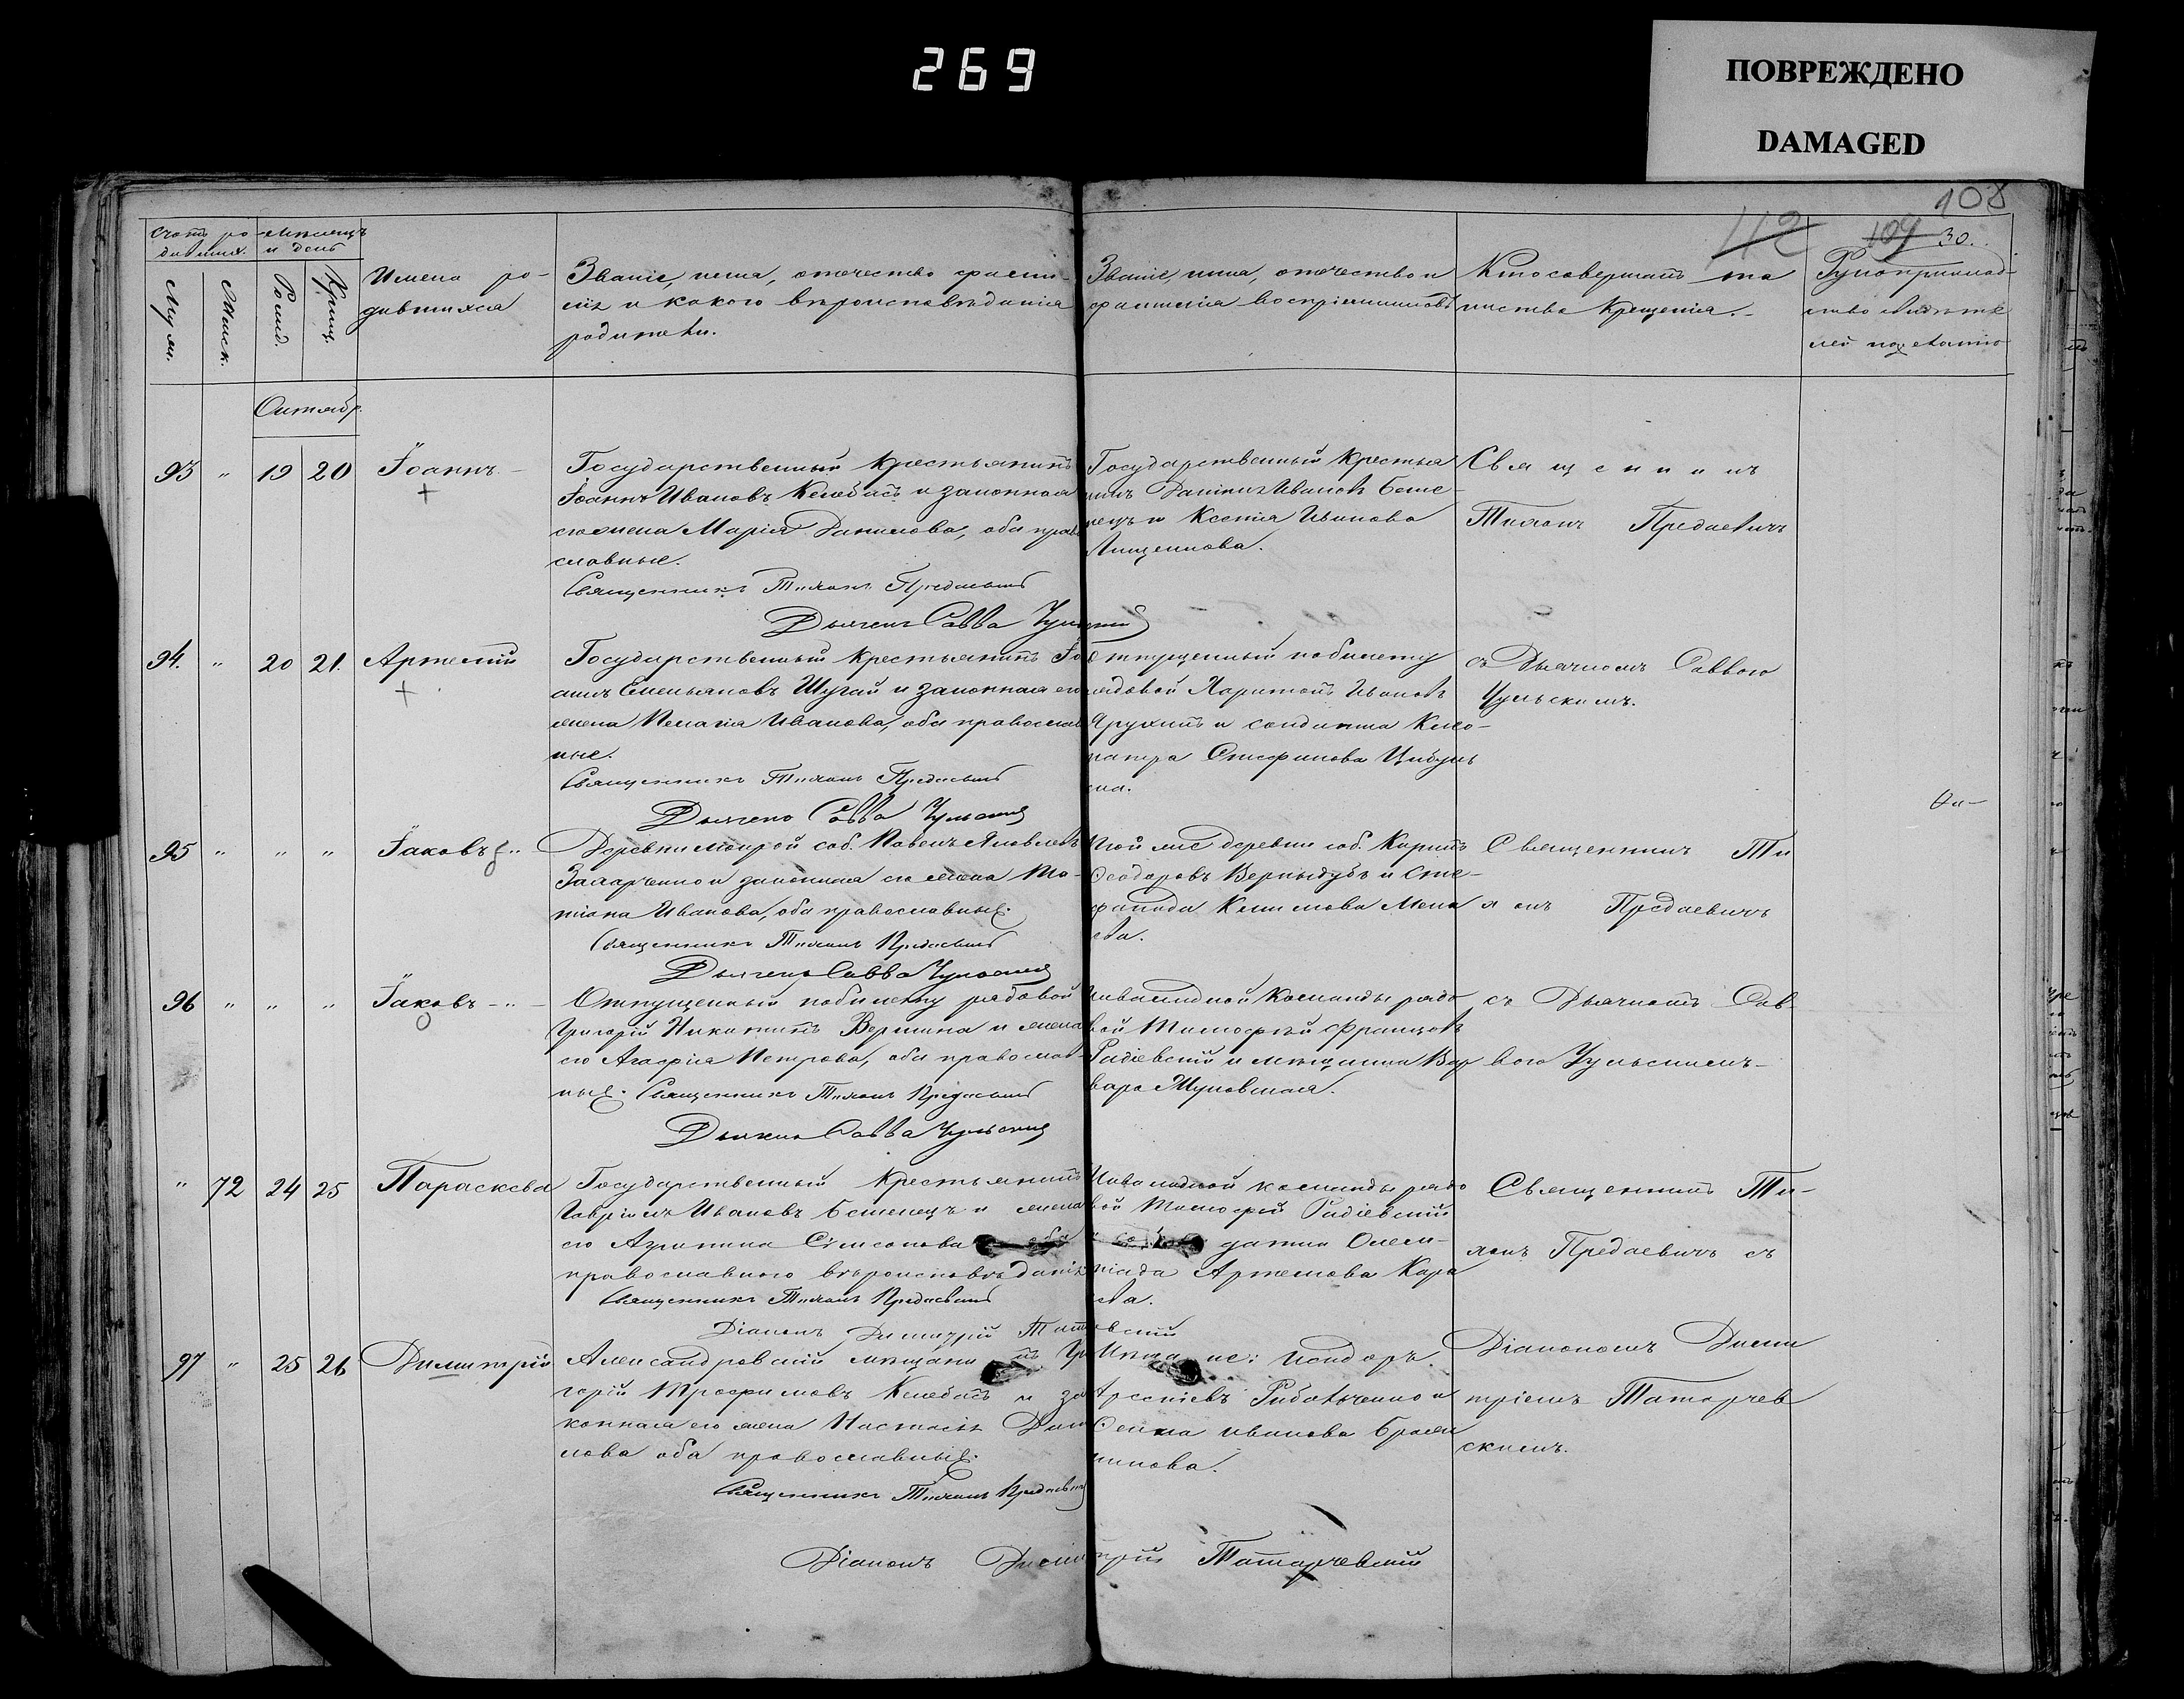 269
ПОВРЕЖДЕНО
DAMAGED
108
112
109 30.
Счетъ ро-
дившихся.
Мѣсяцъ
и день
Муж.
Женск.
Рожд.
Крещ.
Имена ро-
дившихся
Званіе, имя, отчество фами-
лія и какого вѣроисповѣданія
родители.
Званіе, имя, отчество и
фамилія воспріемниковъ
Кто совершалъ та
инство крещенія.
Рукоприклад-
ство свидѣте
лей по желанію
Октябр.
93 " 19 20 Іоаннъ
Государственный крестьянинъ
Іоаннъ Ивановъ Келебасъ и законная
его жена Марія Данилова, оба право
славные.
Священникъ Тихонъ Предаевичъ
Дьячекъ Савва Чульскій
Государственный крестья
нинъ Даніилъ Ивановъ Беше-
нецъ и Ксенія Иванова
Лищенкова.
Священникъ
Тихонъ Предаевичъ
94. " 20 21. Артемій
Государственный крестьянинъ Іо
аннъ Емельяновъ Шугай и законная его
жена Пелагія Иванова, оба православ
ные.
Священникъ Тихонъ Предаевичъ
Дьячекъ Савва Чульскій
Отпущенный по билету
рядовой Харитонъ Ивановъ
и солдатка Клео-
патра Стефанова Цибуль
ска.
съ Дьячкомъ Саввою
Чульскимъ.
95 " " " Іаковъ
Деревни Мокрой соб. Павелъ Яковлевъ
Захарченко и законная его жена Та-
тіана Иванова, оба православные.
Священникъ Тихонъ Предаевичъ
Дьячекъ Савва Чульскій
Той же деревни соб. Карпъ
Ѳеодоровъ Вернидубъ и Сте-
фанида Климова
ева.
Священникъ Ти
хонъ Предаевичъ
96 " " " Іаковъ
Отпущенный по билету рядовой
Григорій Никитинъ Вершина и жена
его Агафія Петрова, оба православ-
ные. Священникъ Тихонъ Предаевичъ
Дьячекъ Савва Чульскій
Инвалидной команды рядо
вой Тимофѣй Францовъ
Радіевскій и мѣщанка Вар
вара Жуковская.
съ Дьячкомъ Сав-
вою Чульскимъ
" 72 24 25 Параскева
Государственный крестьянинъ
Гавріилъ Ивановъ Бешенецъ и жена
его Агрипина Сімеонова оба
православнаго вѣроисповѣданія
Священникъ Тихонъ Предаевичъ
Діаконъ Димитрій
Инвалидной команды рядо
вой Тимофей Радіевскій
и солдатка Олим-
піада Артемова Кара
ева.
Священникъ Ти-
хонъ Предаевичъ съ
97 " 25 26 Димитрій
Александровскій мѣщанинъ Гри
горій Трофимовъ Келебасъ и за
конная его жена Настасія Дани
лова оба православные.
Священникъ Тихонъ Предаевичъ
Діаконъ Димитрій Татарчевскій
Мѣщане: Исидоръ
Арсеніевъ Рибальченко и
Ѳекла Иванова Браж
никова.
Діакономъ Дими
тріемъ Татарчев
скимъ.